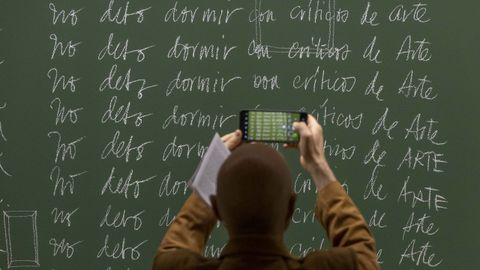 no debo dormir con críticos de arte
no debo dormir con críticos de Arte
no debo dormir con críticos de Arte
no debo dormir críticos de Arte
no debo de ARTE
no debo de ARTE
no debo de Arte
no debo de Arte